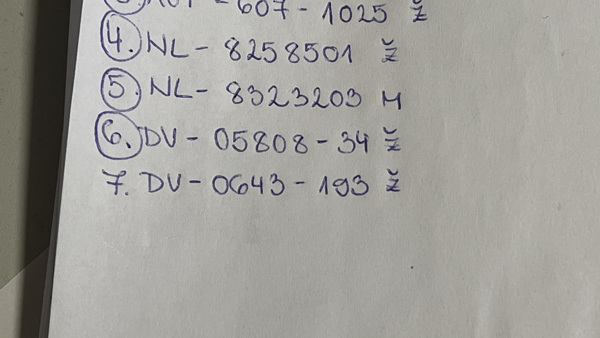 607-1025 Ž
4. NL-8258501 Ž
5. NL-8323203 M
6. DV-05808-34 Ž
7. DV-0643-193 Ž